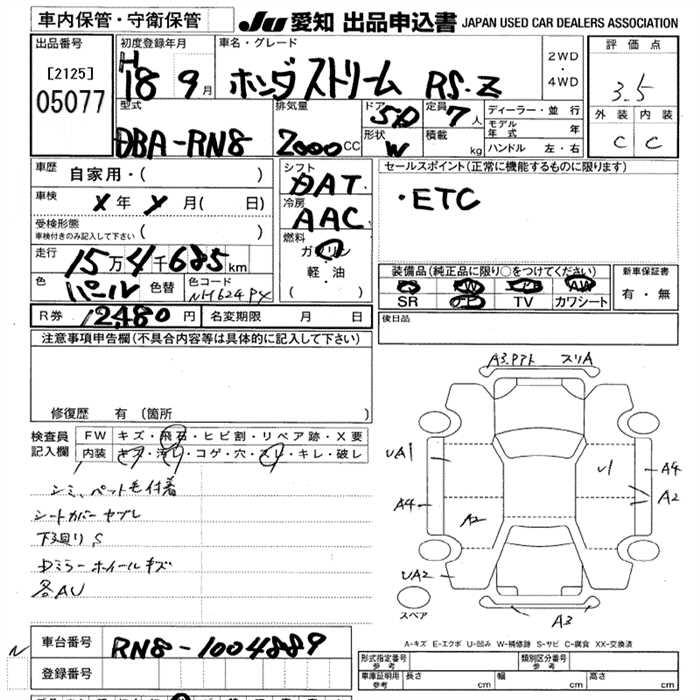 車内保管・守衛保管
JU 愛知 出品申込書 JAPAN USED CAR DEALERS ASSOCIATION
出品番号
[2125]
05077
初度登録年月
H
18 9 月
車名・グレード
ホンダ ストリーム RS.Z
2WD
・
4WD
評価点
3.5
外装 内装
C C
型式
DBA-RN8
排気量
2000 CC
ドア
5D
形状
W
定員
7 人
積載
kg
ディーラー・並行
モデル年式 年
ハンドル 左・右
車歴
自家用・( )
車検
X 年 月( 日)
受検形態
車検付きのみ記入して下さい ( )
走行
15万4千685km
色
パール
色替
色コード
NH624PX
シフト
DAT
冷房
AAC
燃料
ガソリン
軽・油
( )
セールスポイント(正常に機能するものに限ります)
・ETC
装備品(純正品に限り○をつけてください)
AW
SR TV カワシート
新車保証書
有・無
R券 12,480 円
名変期限 月 日
後日品
注意事項申告欄(不具合内容等は具体的に記入して下さい)
修復歴 有 (箇所 )
検査員
記入欄
FW キズ・飛石・ヒビ割・リペア跡・X要
内装 キズ・汚レ・コゲ・穴・スレ・キレ・破レ
シミ、ペット毛付着
シートカバー ヤブレ
下廻り S
Dミラー ホイールキズ
各AU
A3.アト スリA
UA1
U1
A4
A2
A4
A2
UA2
A3
スペア
A-キズ E-エクボ U-凹み W-補修跡 S-サビ C-腐食 XX-交換済
車台番号
RN8-1004889
登録番号
形式指定番号
参考
類別区分番号
参考
車庫証明用
参考
長さ cm
幅 cm
高さ cm